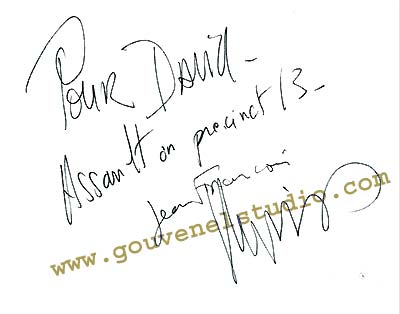 Pour David_
Assault on precinct 13_
Jean François
www.gouvenelstudio.com